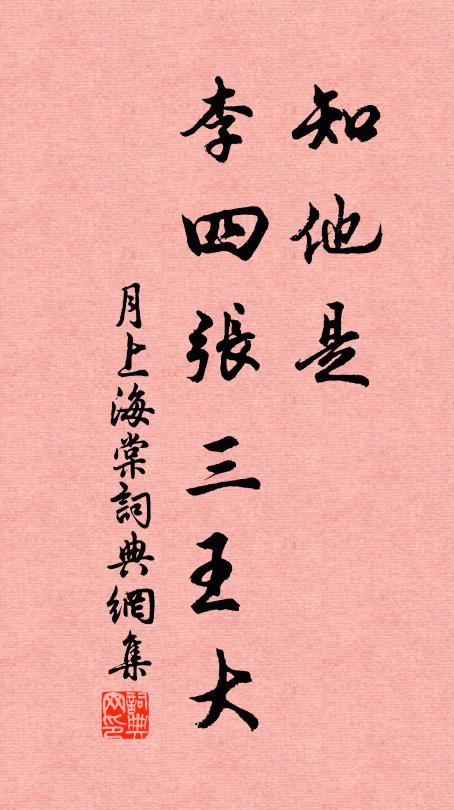 知他是
李四張三王大
月上海棠詞典網集
詞典
网印